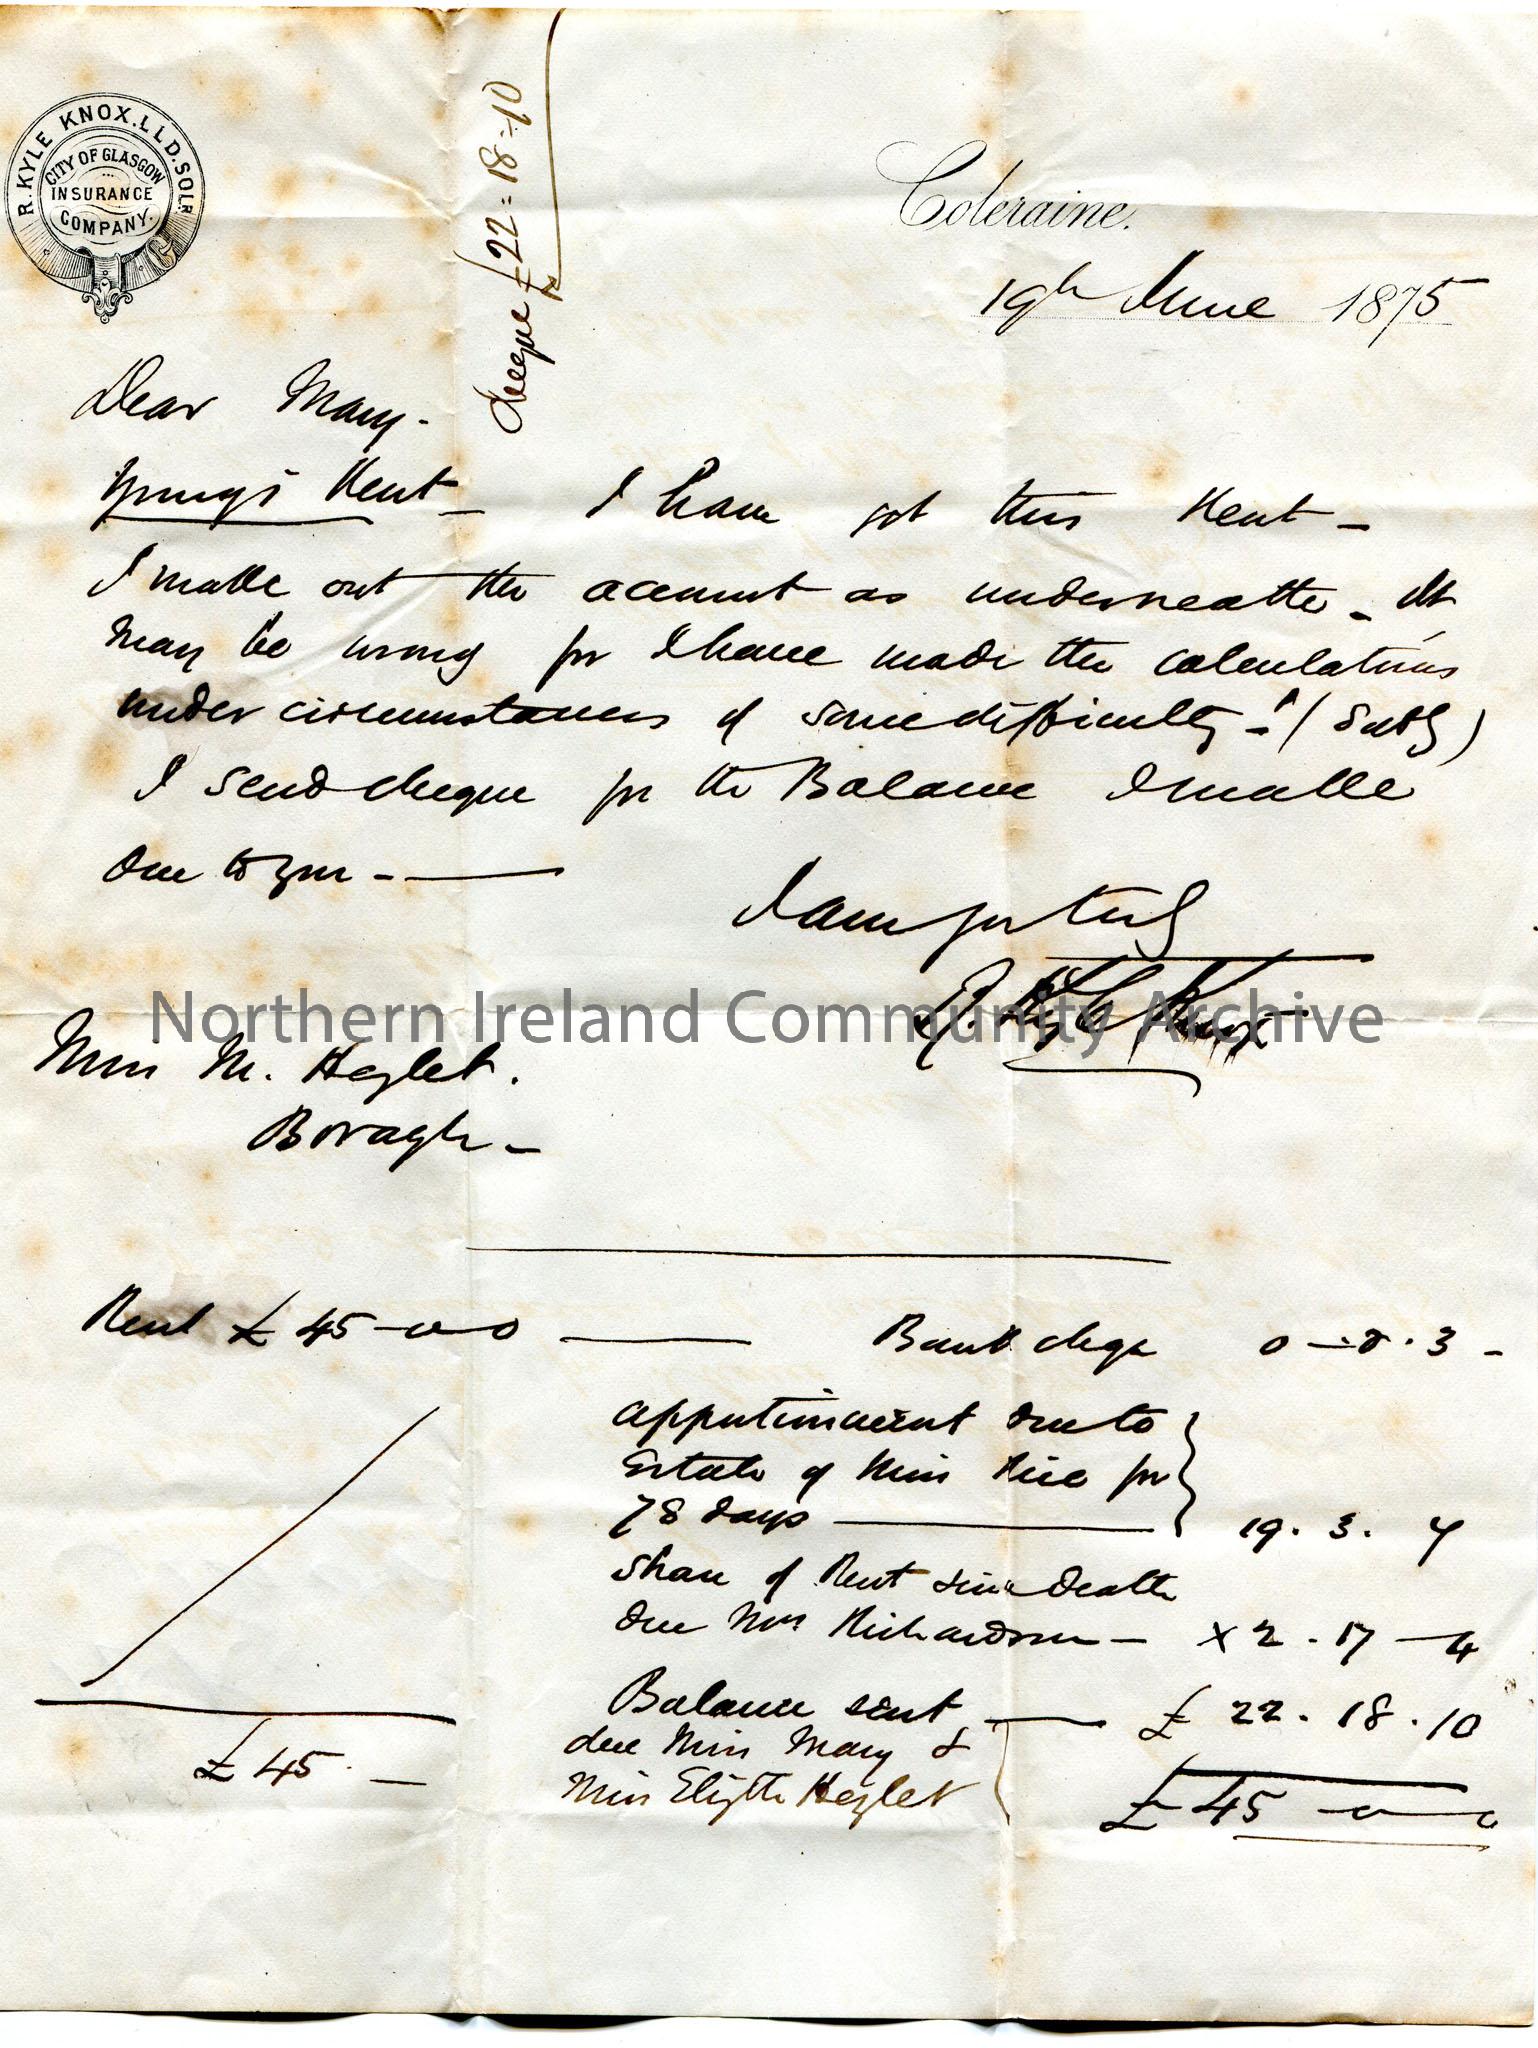 R. KYLE KNOX. LL.D. SOLR.
CITY OF GLASGOW
INSURANCE
COMPANY.
cheque £22=18=10
Coleraine.
19th June 1875
Dear Mary -
Young's Rent - I have got this Rent -
I make out the account as underneath - It
may be wrong for I have made the calculations
under circumstances of some difficulty - !
I send cheque for the Balance I make
due to you -
I am yrs truly
R. Kyle Knox
Northern Ireland Community Archive
Miss M. Hezlet.
Bovagh -
Rent £45-0-0 Bank chqe 0-0.3-
apportionment due to
Estate of Miss Rice for
78 days 19. 3. 7
Share of Rent since death
due Mrs Richardson - x 2 - 17 - 4
Balance sent £ 22. 18. 10
due Miss Mary &
Miss Elizth Hezlet
£45. - £45 - 0 - 0